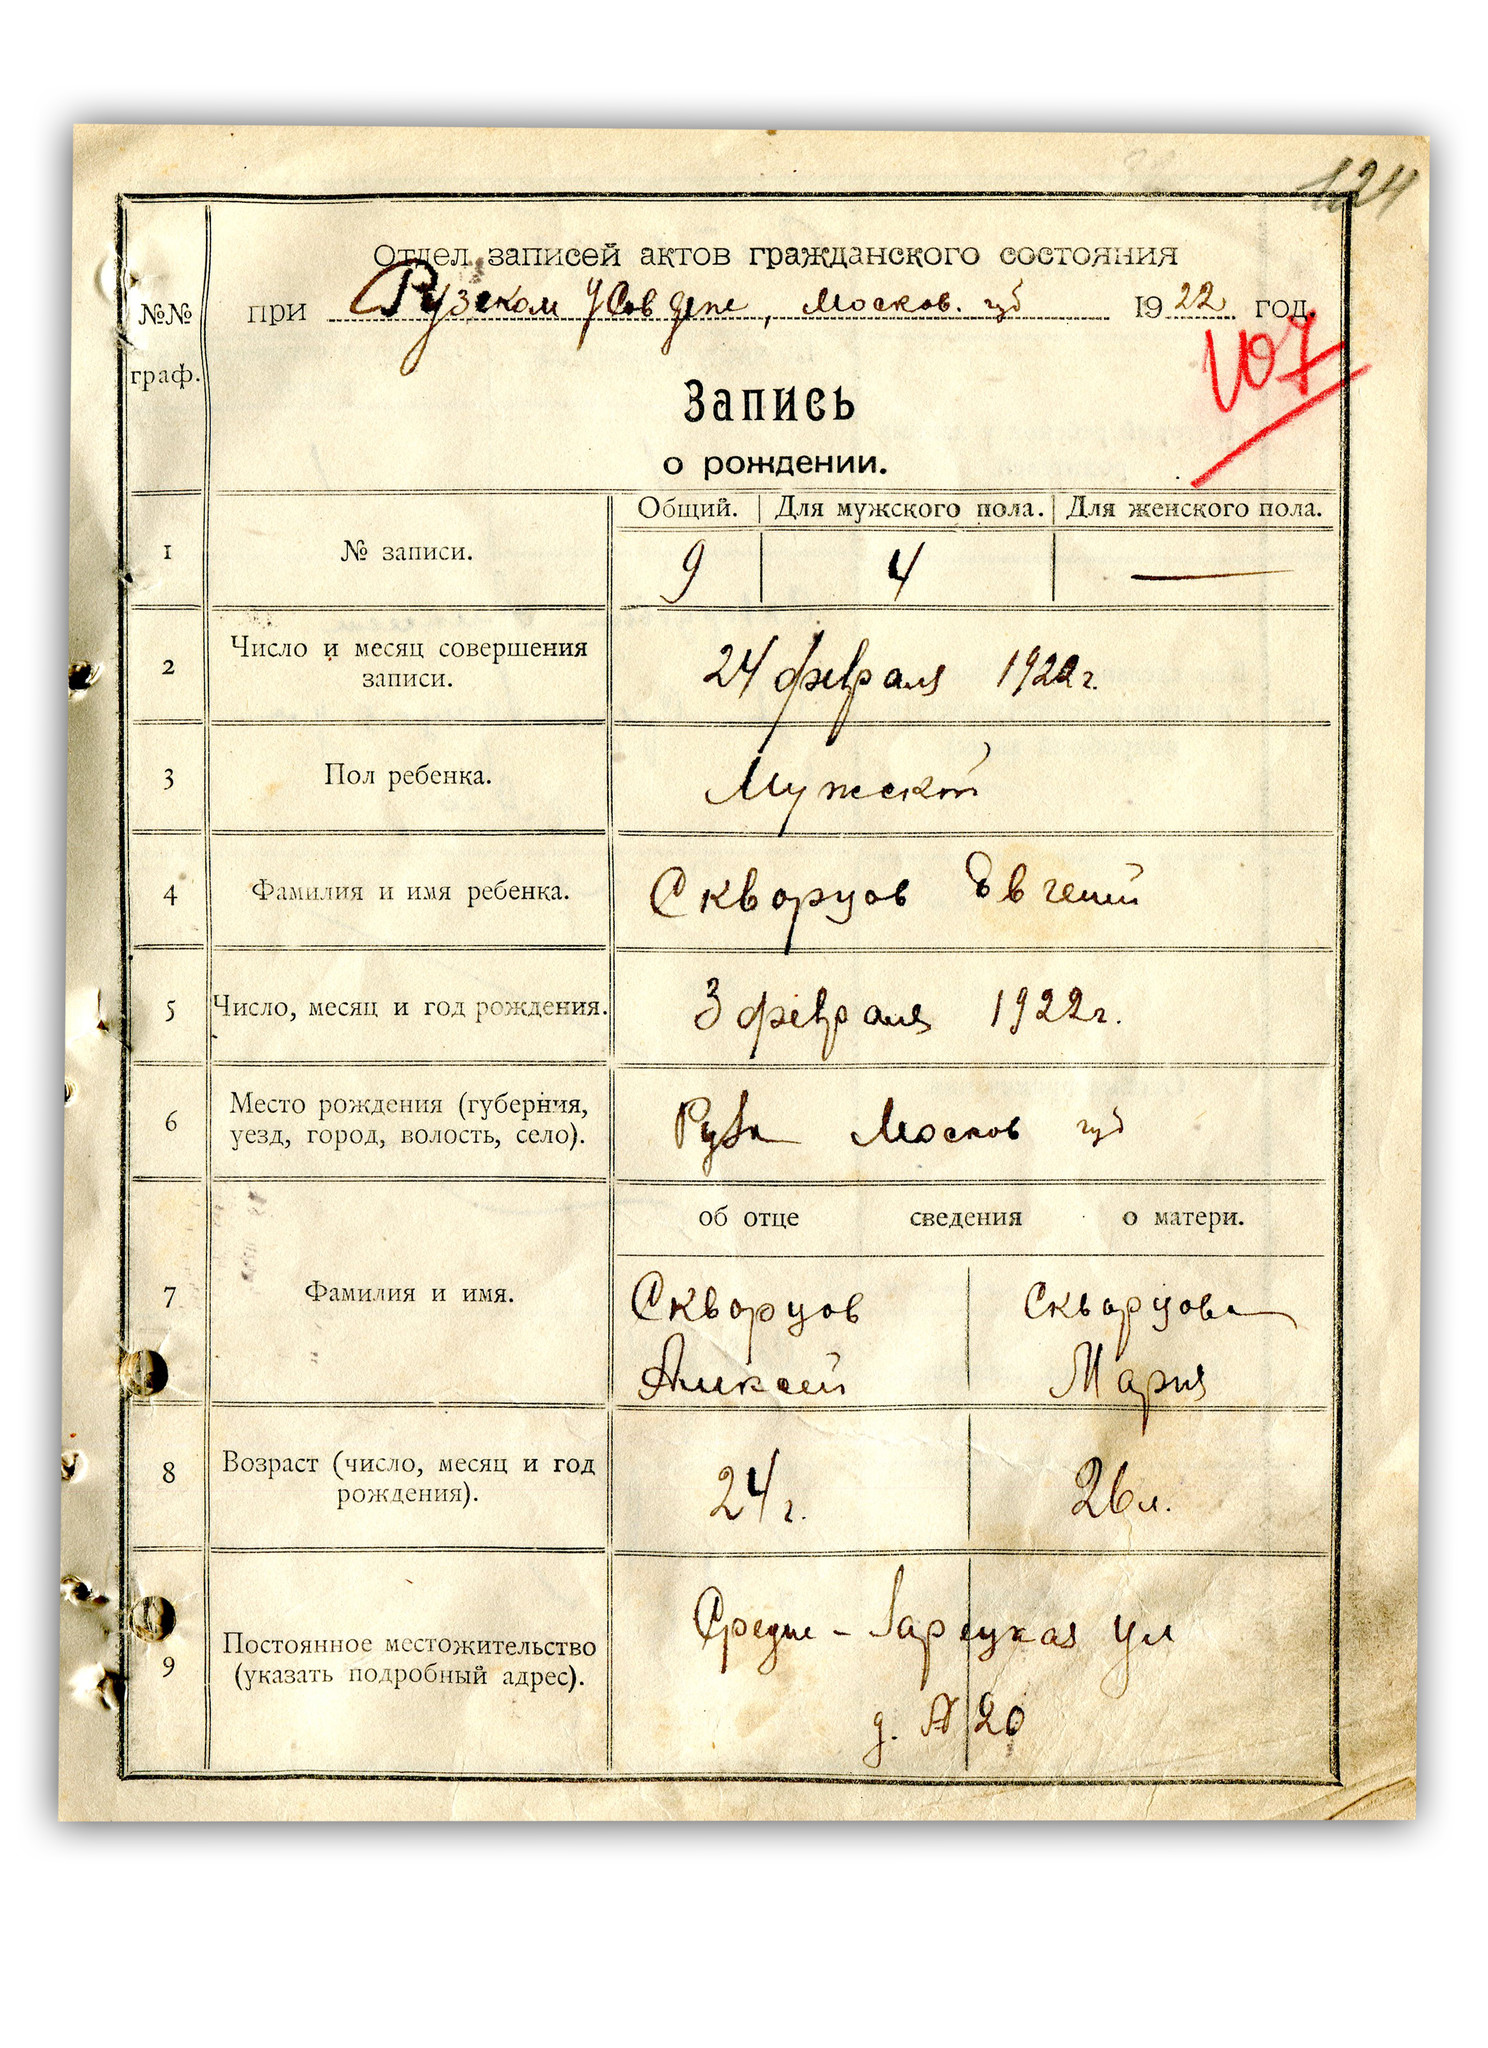 124
Отдел записей актов гражданского состояния
при Рузском уСовдепе, Москов. губ 1922 год.
№№
граф.
107
Запись
о рождении.
Общий. Для мужского пола. Для женского пола.
1 № записи. 9 4 —
2 Число и месяц совершения
записи. 24 февраля 1922 г.
3 Пол ребенка. Мужской
4 Фамилия и имя ребенка. Скворцов Евгений
5 Число, месяц и год рождения. 3 февраля 1922 г.
6 Место рождения (губерния,
уезд, город, волость, село). Руза Москов губ
об отце сведения о матери.
7 Фамилия и имя. Скворцов Скворцова
Алексей Мария
8 Возраст (число, месяц и год
рождения). 24 г. 26 л.
9 Постоянное местожительство
(указать подробный адрес). Средне-Зарецкая ул
д. № 20